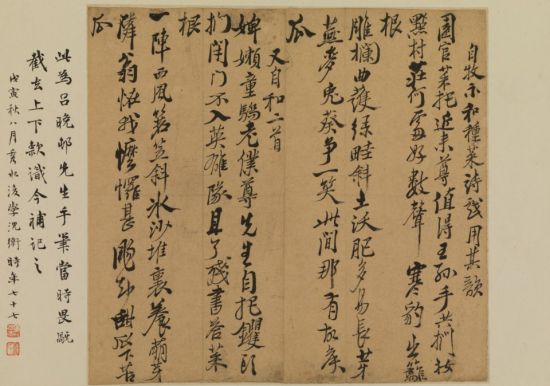 自牧示和種菜詩戲用其韻
園官菜把近來尊值得王孫手共捫牧
點村莊何處好數聲寒豹出籬
根
雕欄曲護綠畦斜土沃肥多易長芽
燕麥兔葵爭一笑此間那有故侯
瓜
又自和二首
婢嬾童驕老僕尊先生自把钁頭
捫閉門不入英雄隊且了殘書菜
根
一陣西風箬笠斜冰沙堆裏養萌芽
隣翁怪我懞懂甚却甜下苦
瓜
此為呂晚邨先生手筆當時畏觸
截去上下款識今補記之
戊寅秋八月後學沈衛時年七十七